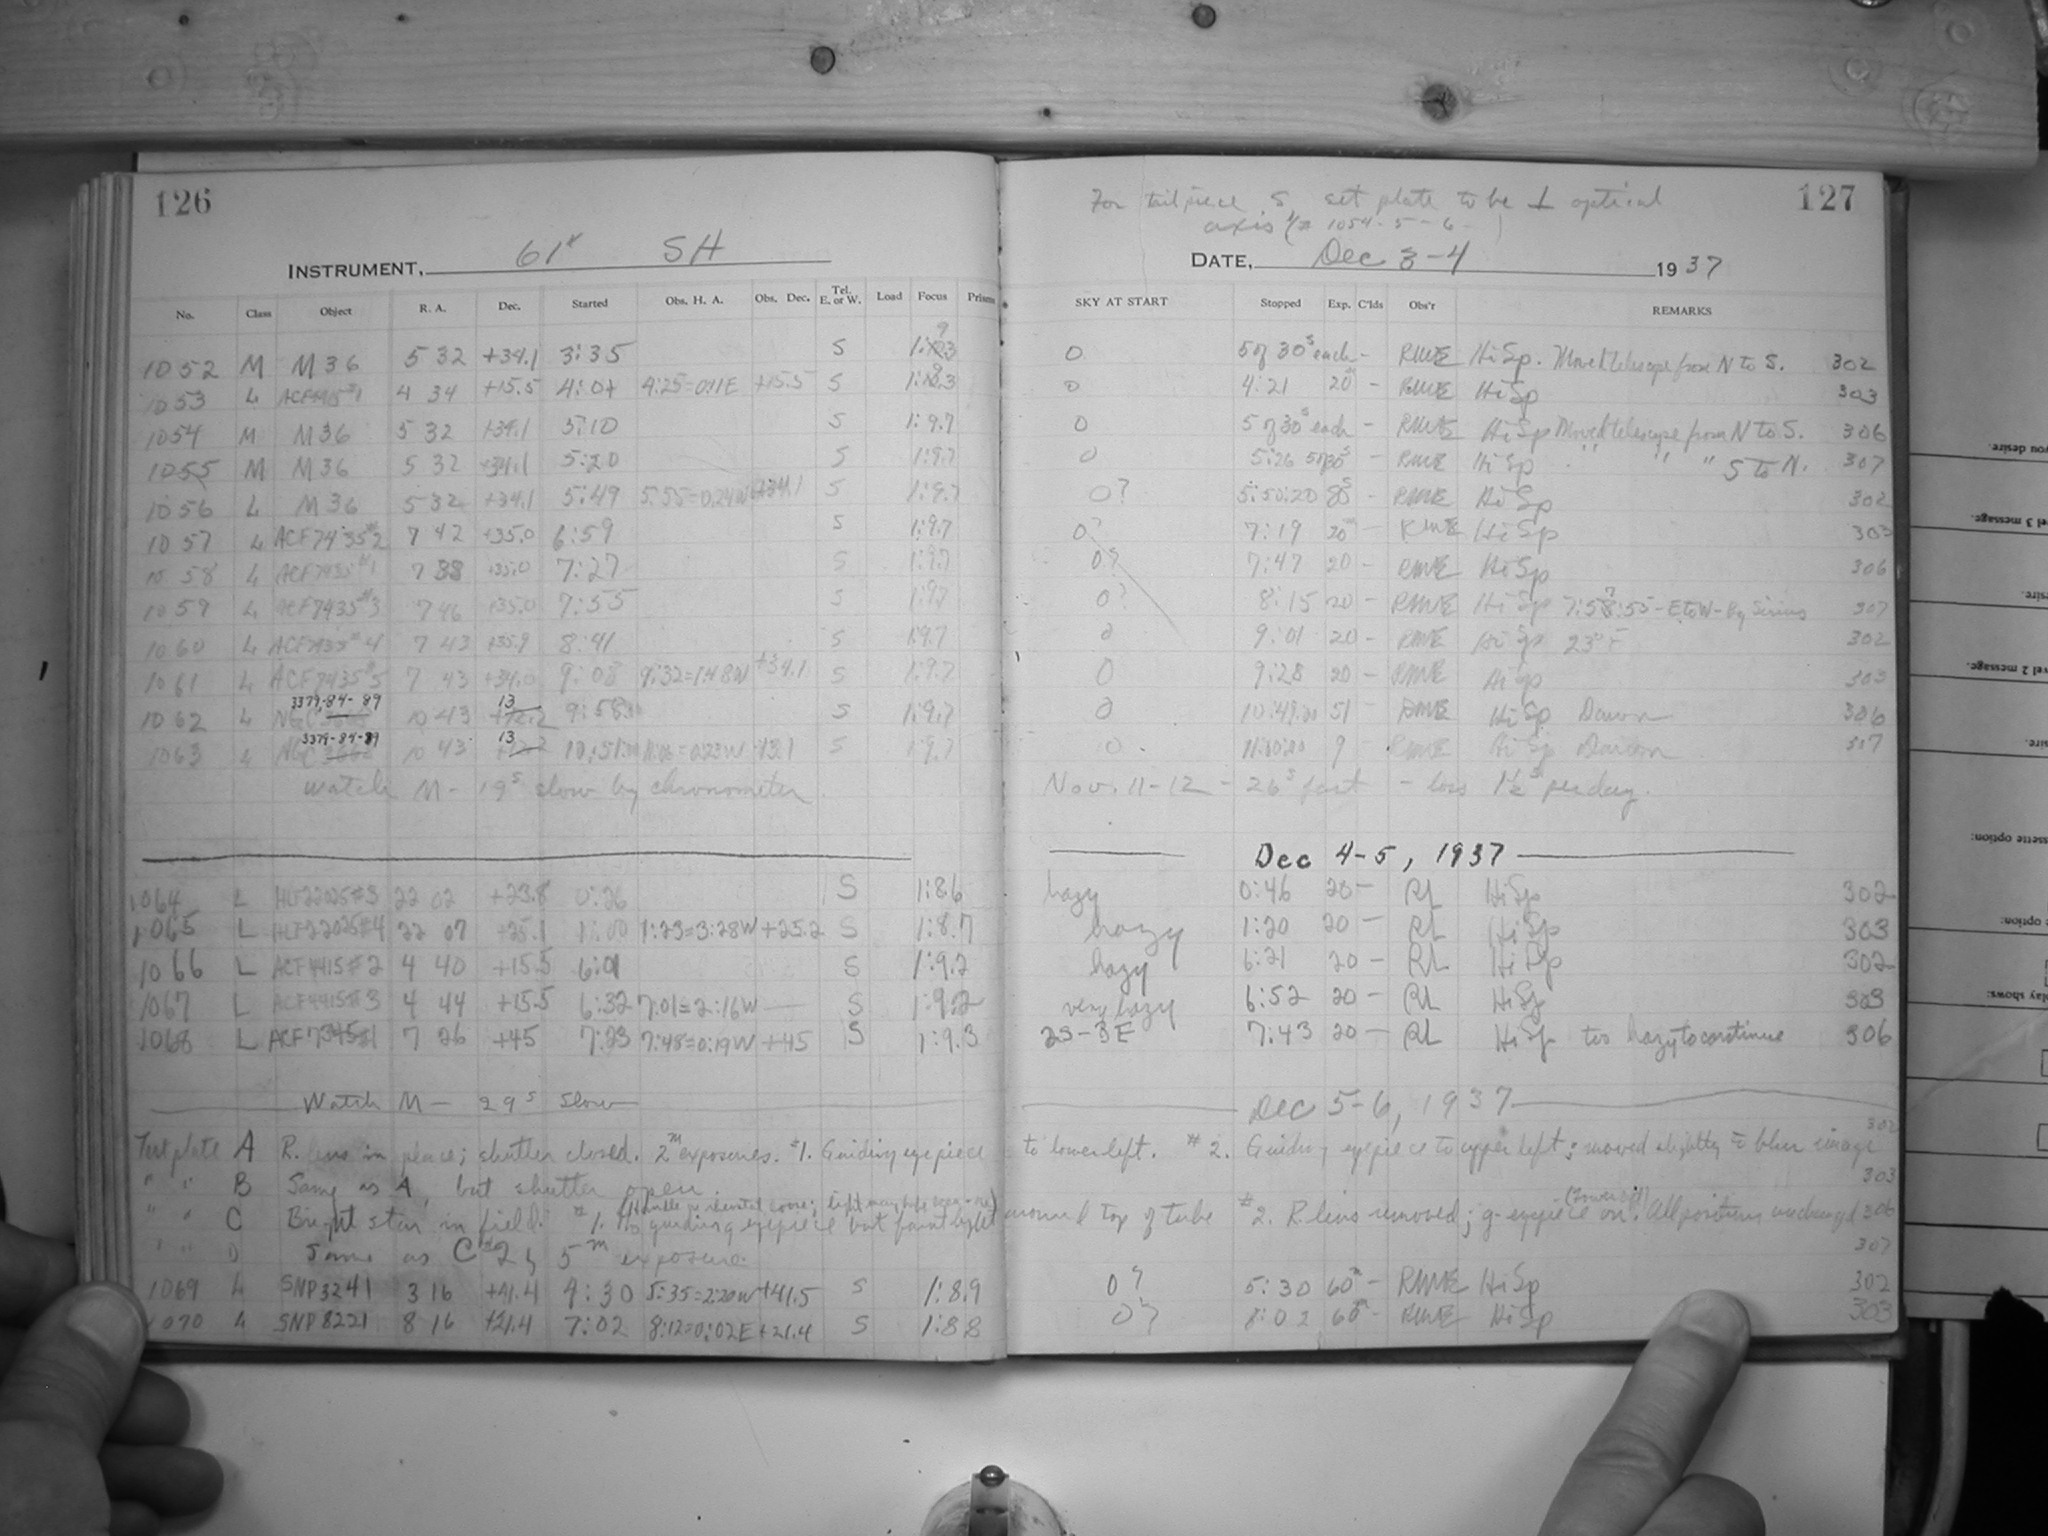 126
INSTRUMENT, 61" SH
No. Class Object R. A. Dec. Started Obs. H. A. Obs. Dec. Tel. E. or W. Load Focus Prism
1052 M M36 5 32 +34.1 3:35 S
1053 L 4 34 +15.5 4:01 4:25=0:11E +15.5 S
1054 M M36 5 32 +34.1 5:10 S 1:9.7
1055 M M36 5 32 +34.1 5:20 S 1:9.7
1056 L M36 5 32 +34.1 5:49 5:55=0:24W +34.1 S 1:9.7
1057 L ACF7435#2 7 42 +35.0 6:59 S 1:9.7
1058 L ACF7435#1 7 38 +35.0 7:27 S 1:9.7
1059 L ACF7435#3 7 46 +35.0 7:55 S 1:9.7
1060 L ACF7435#4 7 43 +35.9 8:41 S 1:9.7
1061 L ACF7435#5 7 43 +34.0 9:08 9:32=1:48W +34.1 S 1:9.7
1062 L NGC 3379-84-89 10 43 13 9:58 S 1:9.7
1063 L NGC 3379-84-89 10 43 13 10:51 11:06=0:23W 13.1 S 1:9.7
Watch M - 19s slow by chronometer
1064 L HLF22025#3 22 02 +23.8 0:26 S 1:8.6
1065 L HLF22025#4 22 07 +25.1 1:00 1:23=3:28W +25.2 S 1:8.7
1066 L ACF4415#2 4 40 +15.5 6:01 S 1:9.2
1067 L ACF4415#3 4 44 +15.5 6:32 7:01=2:16W — S 1:9.2
1068 L ACF7345#1 7 26 +45 7:23 7:48=0:19W +45 S 1:9.3
Watch M - 29s slow
Test plate A R. lens in place; shutter closed. 2m exposures. #1. Guiding eyepiece
" " B Same as A, but shutter open.
" " C Bright star in field. #1. No guiding eyepiece but faint light
" " D Same as C#2, 5m exposure.
1069 L SNP3241 3 16 +41.4 4:30 5:35=2:20W +41.5 S 1:8.9
1070 L SNP8221 8 16 +21.4 7:02 8:12=0:02E +21.4 S 1:8.8
127
For tailpiece S, set plate to be ⊥ optical
axis (# 1054-5-6-)
DATE, Dec 3-4 1937
SKY AT START Stopped Exp. C'lds Obs'r REMARKS
0 5 of 30s each - RWE HiSp. Moved telescope from N to S. 302
0 4:21 20m - RWE HiSp 303
0 5 of 30s each - RWE HiSp Moved telescope from N to S. 306
0 5:26 5 of 30s - RWE HiSp " " " S to N. 307
0? 5:50:20 80s - RWE HiSp 302
0? 7:19 20m - RWE HiSp 303
0? 7:47 20 - RWE HiSp 306
0? 8:15 20 - RWE HiSp 7:58:55 - E to W - By Sirius 307
0 9:01 20 - RWE HiSp 23° F 302
0 9:28 20 - RWE HiSp 303
0 51 - RWE HiSp Dawn 306
0 9 RWE HiSp 307
Nov. 11-12 - 26s fast - loss 1½s per day.
Dec 4-5, 1937
hazy 0:46 20 - RL HiSp 302
hazy 1:20 20 - RL HiSp 303
hazy 6:21 20 - RL HiSp 302
very hazy 6:52 20 - RL HiSp 303
2S-3E 7:43 20 - RL HiSp too hazy to continue 306
Dec 5-6, 1937
to lower left. #2. Guiding eyepiece to upper left; moved slightly to blur image 302
303
around top of tube #2. R. lens removed; g-eyepiece on. All positions unchanged 306
307
0? 5:30 60m - RWE HiSp 302
0? 8:02 60m - RWE HiSp 303
you desire.
el 3 message.
sire.
vel 2 message.
sire.
ssette option:
e option:
play shows: